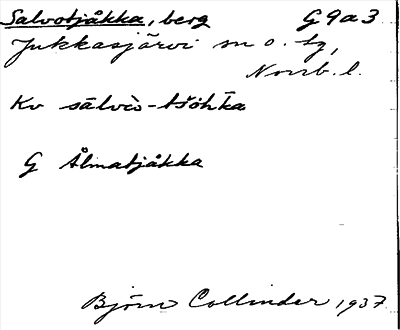 Salvotjåkka, berg G9a3
Jukkasjärvi sn o. tg,
Norrb. l.
Kv sālvὸ-tšòh̄ka
G Ålmatjåkka
Björn Collinder 1937